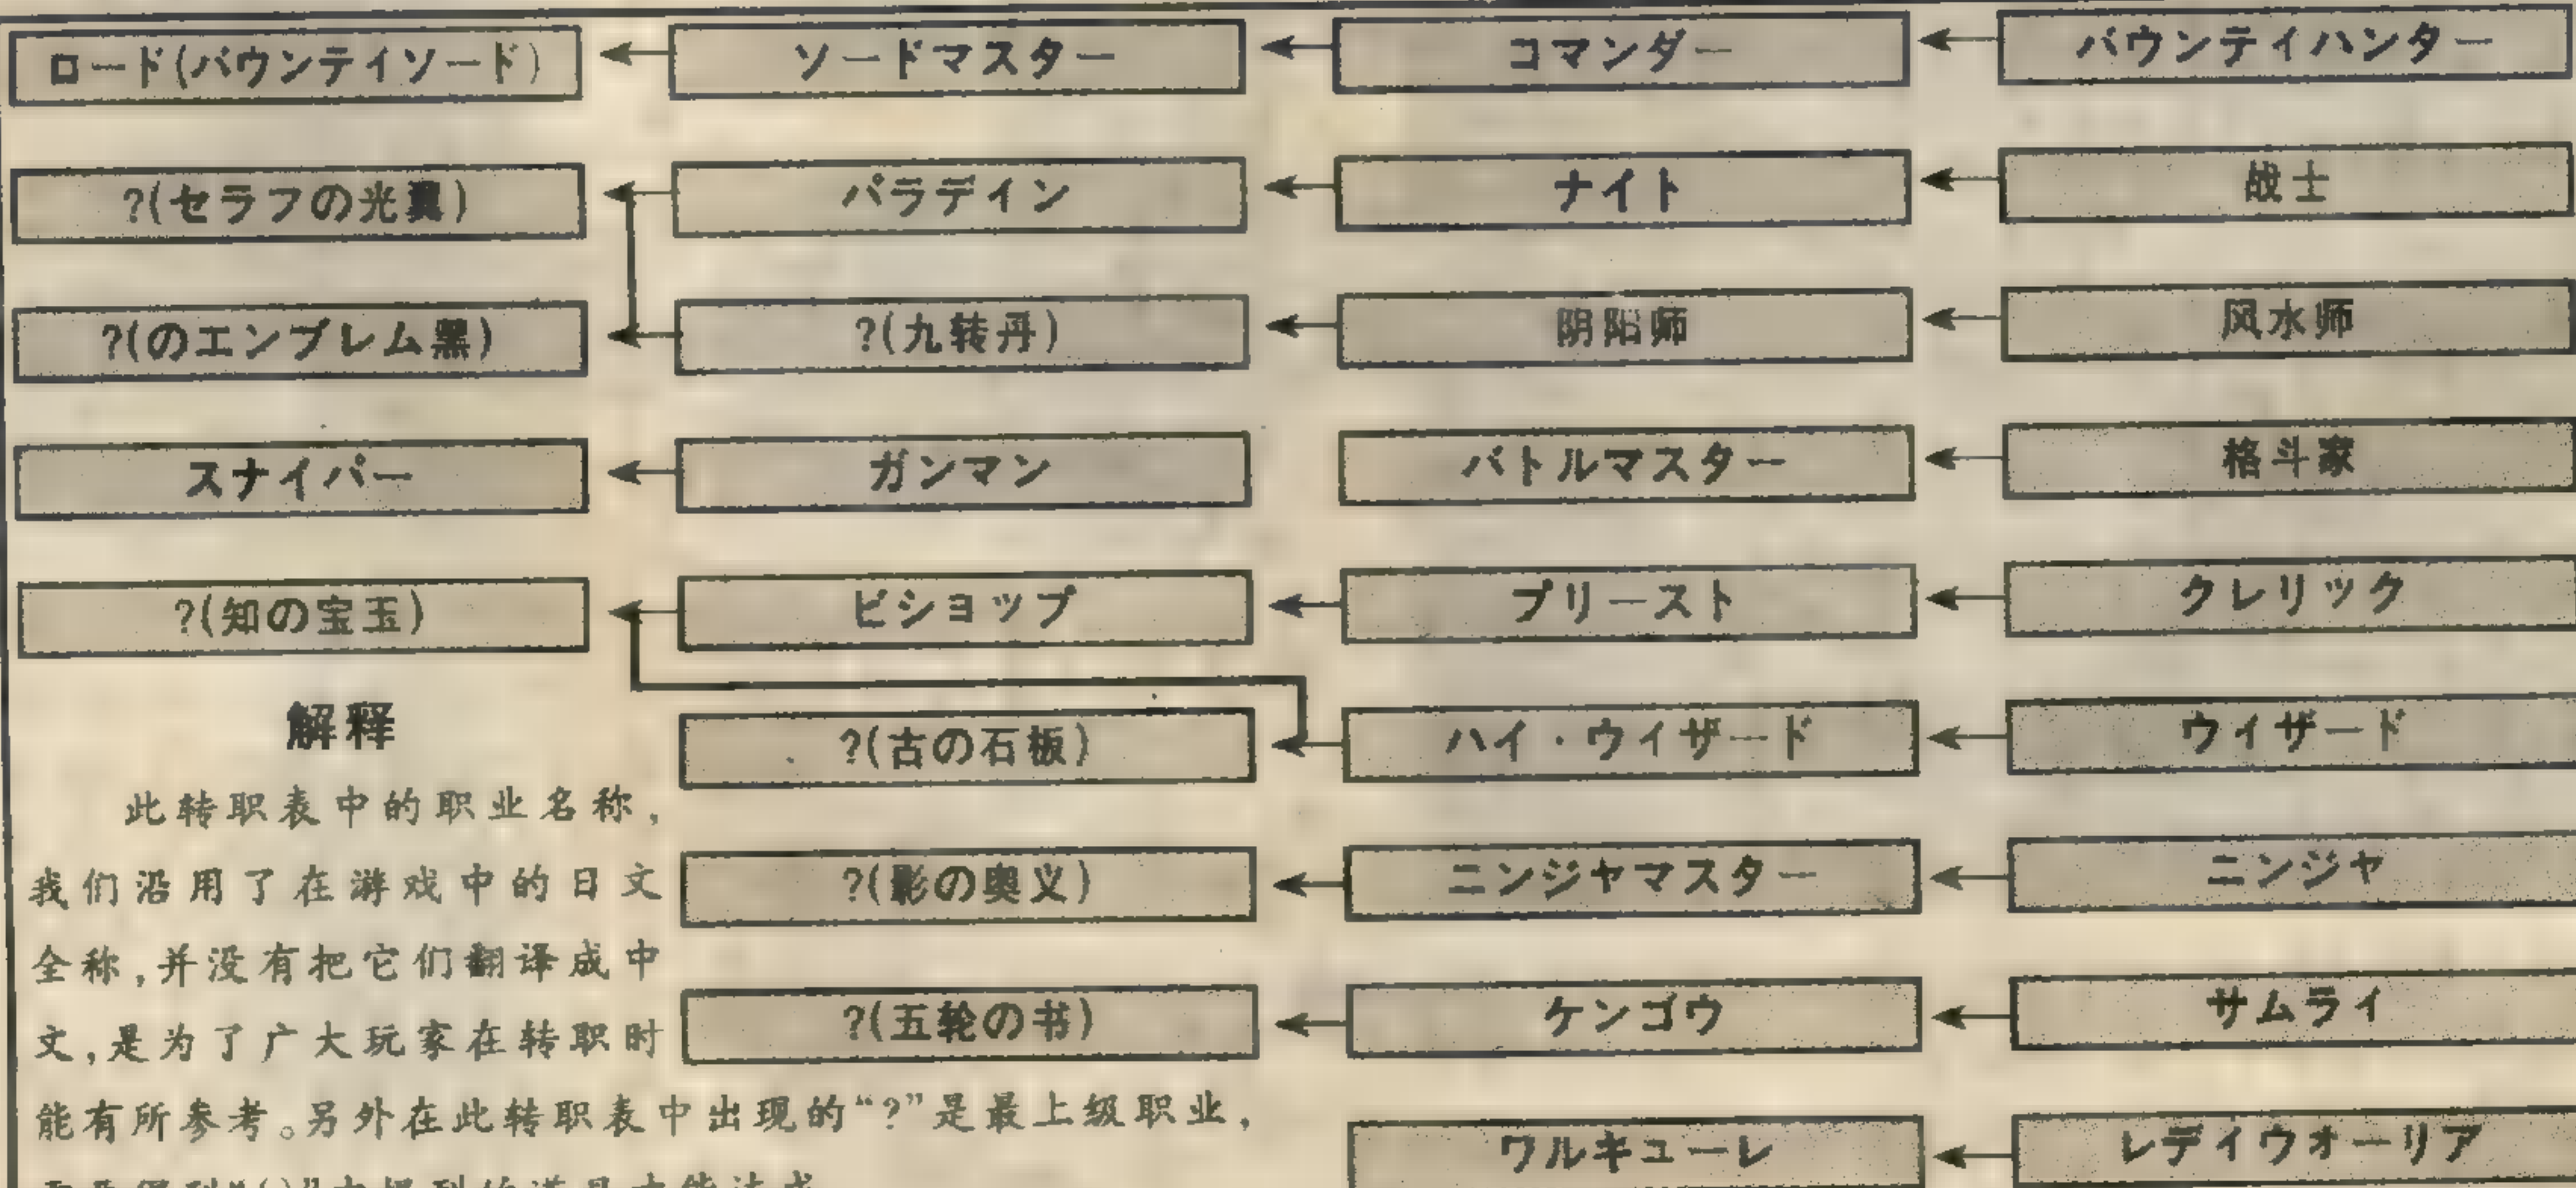 ロード(バウンテイソード)
ソードマスター
コマンダー
バウンテイハンター
?(セラフの光翼)
パラデイン
ナイト
战士
?(のエンブレム黑)
?(九转丹)
阴阳师
风水师
スナイパー
ガンマン
バトルマスター
格斗家
?(知の宝玉)
ビショップ
プリースト
クレリック
?(古の石板)
ハイ·ウィザード
ウィザード
?(影の奥义)
ニンジャマスター
ニンジャ
?(五轮の书)
ケンゴウ
サムライ
ワルキューレ
レデイウォーリア
解释
此转职表中的职业名称,
我们沿用了在游戏中的日文
全称,并没有把它们翻译成中
文,是为了广大玩家在转职时
能有所参考。另外在此转职表中出现的“?”是最上级职业,